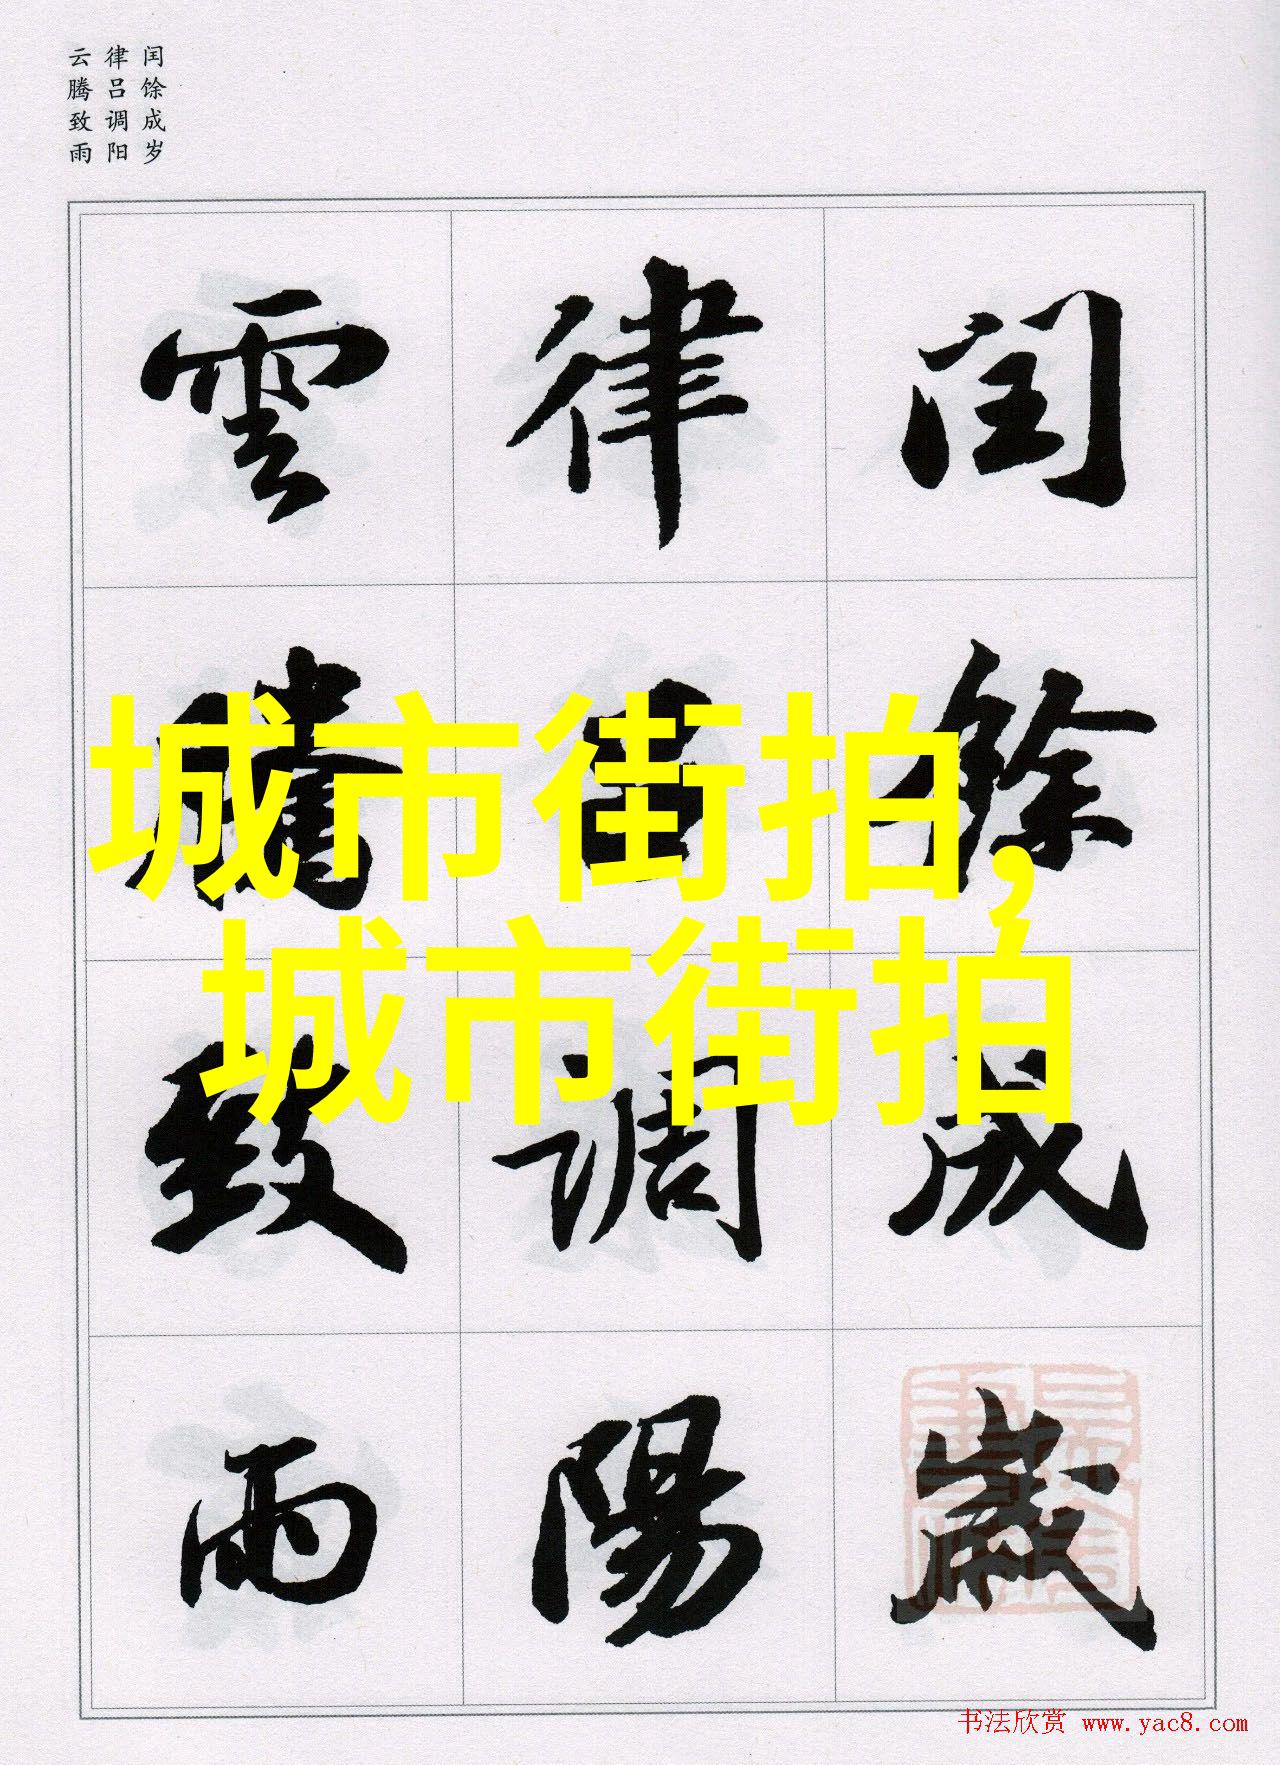 闰馀成岁
律吕调阳
云腾致雨
闰餘成歲
律吕調陽
雲騰致雨
城市街拍,
城市街拍
书法欣赏 www.yac8.com